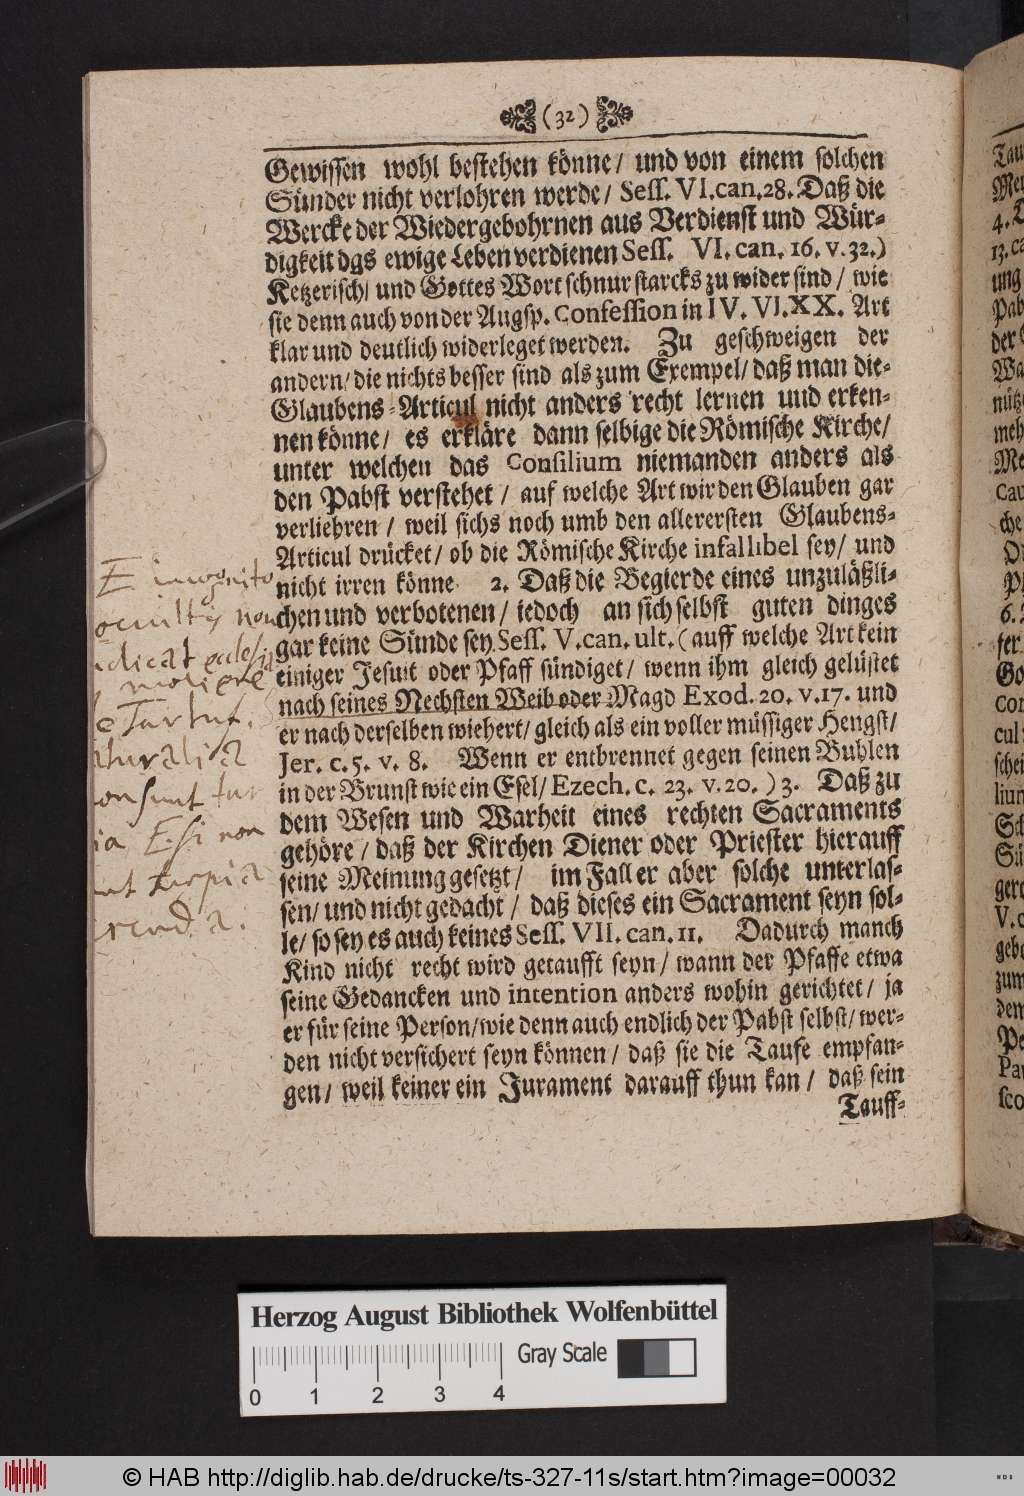 (32)
Gewissen wohl bestehen könne/ und von einem solchen
Sünder nicht verlohren werde/ Sess. VI.can.28. Daß die
Wercke der Wiedergebohrnen aus Verdienst und Wür-
digkeit dgs ewige Leben verdienen Sess. VI. can. 16. v. 32.)
Ketzerisch/ und Gottes Wort schnur starcks zu wider sind/ wie
sie denn auch von der Augsp. Confession in IV. VI. XX. Art
klar und deutlich widerleget werden. Zu geschweigen der
andern/ die nichts besser sind als zum Exempel/ daß man die-
Glaubens-Articul nicht anders recht lernen und erken-
nen könne/ es erkläre dann selbige die Römische Kirche/
unter welchen das Consilium niemanden anders als
den Pabst verstehet/ auf welche Art wir den Glauben gar
verliehren/ weil sichs noch umb den allerersten Glaubens-
Articul drücket/ ob die Römische Kirche infallibel sey/ und
nicht irren könne 2. Daß die Begierde eines unzuläßli-
chen und verbotenen/ iedoch an sich selbst guten dinges
gar keine Sünde sey Sess. V.can. ult. (auff welche Art kein
einiger Jesuit oder Pfaff sündiget/ wenn ihm gleich gelüstet
nach seines Nechsten Weib oder Magd Exod. 20. v. 17. und
er nach derselben wiehert/ gleich als ein voller müssiger Hengst/
Jer. c. 5. v. 8. Wenn er entbrennet gegen seinen Buhlen
in der Brunst wie ein Esel/ Ezech. c. 23. v. 20. ) 3. Daß zu
dem Wesen und Warheit eines rechten Sacraments
gehöre/ daß der Kirchen Diener oder Priester hierauff
seine Meinung gesetzt/ im Fall er aber solche unterlas-
sen/ und nicht gedacht/ daß dieses ein Sacrament seyn sol-
le/ so sey es auch keines Sess. VII. can. 11. Dadurch manch
Kind nicht recht wird getaufft seyn/ wann der Pfaffe etwa
seine Gedancken und intention anders wohin gerichtet/ ja
er für seine Person/ wie denn auch endlich der Pabst selbst/ wer-
den nicht versichert seyn können/ daß sie die Taufe empfan-
gen/ weil keiner ein Jurament darauff thun kan/ daß sein
Tauff-
E incognito
occultis non
moliere
Tartuf.
naturalia
non sunt tur
pia E si non
sunt turpia
Tau
4. D
13. ca
ung
Pab
der
Wa
nütz
meh
Me
Cau
che
6.
Go
Con
cul
schei
lium
Sü
V. c
gebe
zum
dem
Pe
Pau
sco
Herzog August Bibliothek Wolfenbüttel
Gray Scale
0 1 2 3 4
© HAB http://diglib.hab.de/drucke/ts-327-11s/start.htm?image=00032